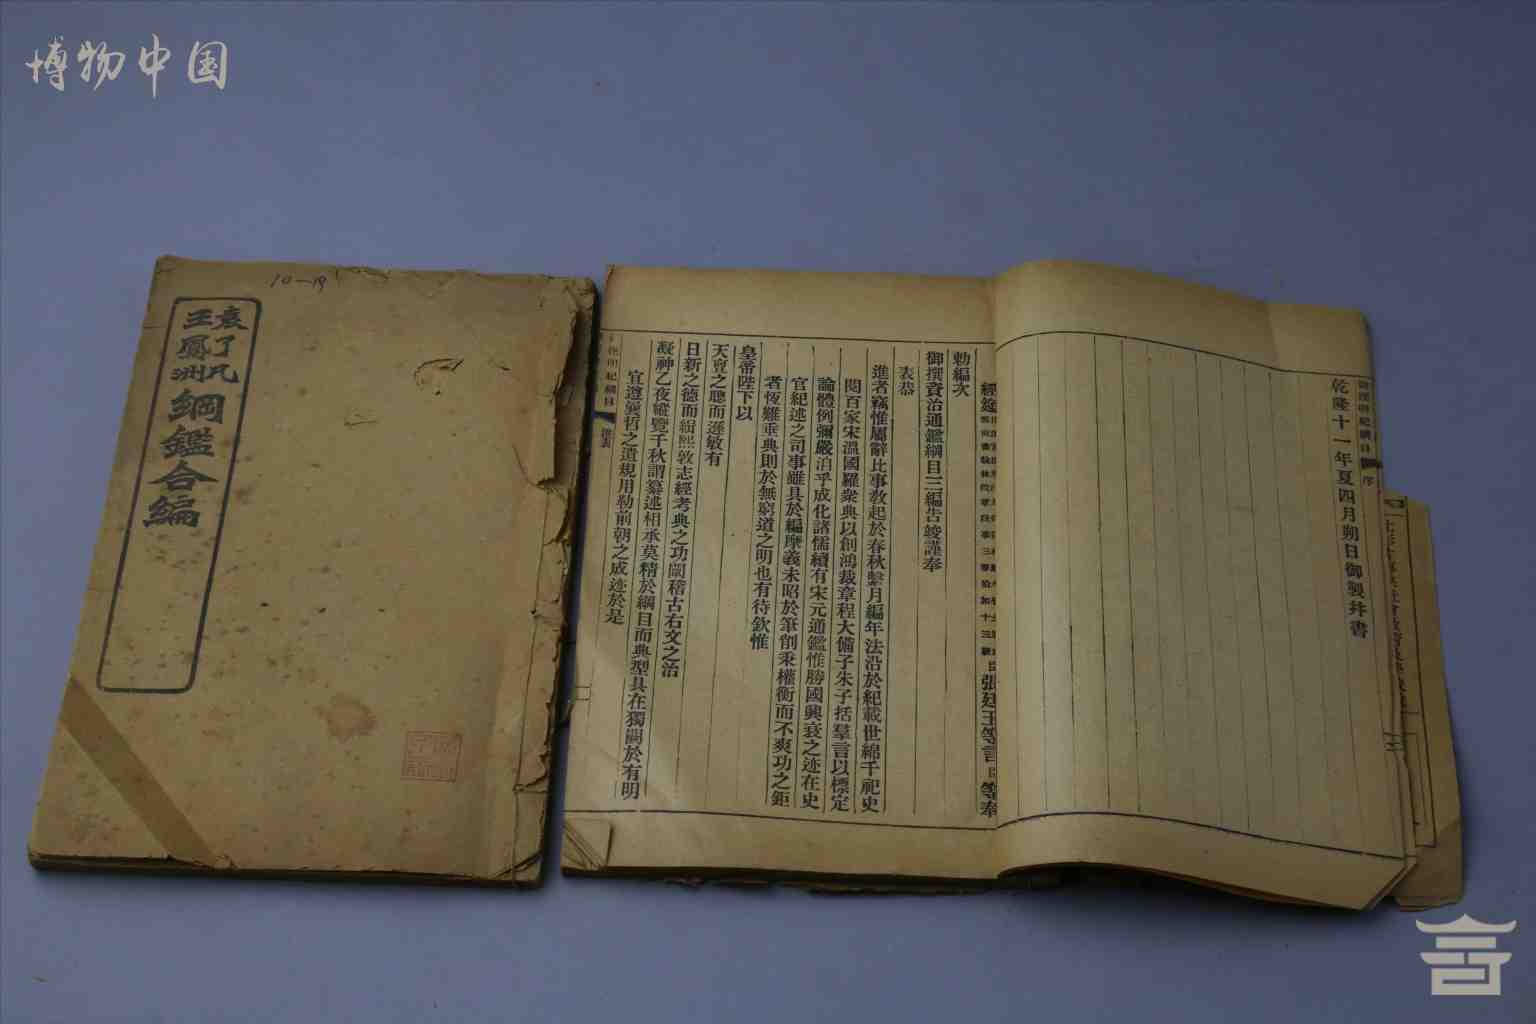 博物中国
10-19
袁了凡
王鳳洲
綱鑑合編
乾隆十一年夏四月朔日御製并書
經筵
臣張廷玉等言
等奉
勅編次
御撰資治通鑑綱目三編告竣謹奉
表恭
進者竊惟屬辭比事教起於春秋繫月編年法沿於紀載世綿千祀史
閱百家宋溫國羅衆典以創鴻裁章程大備子朱子括羣言以標定
論體例彌嚴洎乎成化諸儒續有宋元通鑑惟勝國興衰之迹在史
官紀述之司事雖具於編摩義未昭於筆削秉權衡而不爽功之鉅
者恆難垂典則於無窮道之明也有待欽惟
皇帝陛下以
天亶之聰而遜敏有
日新之德而緝熙敦志經考典之功闡稽古右文之治
凝神乙夜縱覽千秋謂纂述相承莫精於綱目而典型具在獨闕於有明
宜遵曩哲之遺規用勒前朝之成迹於是